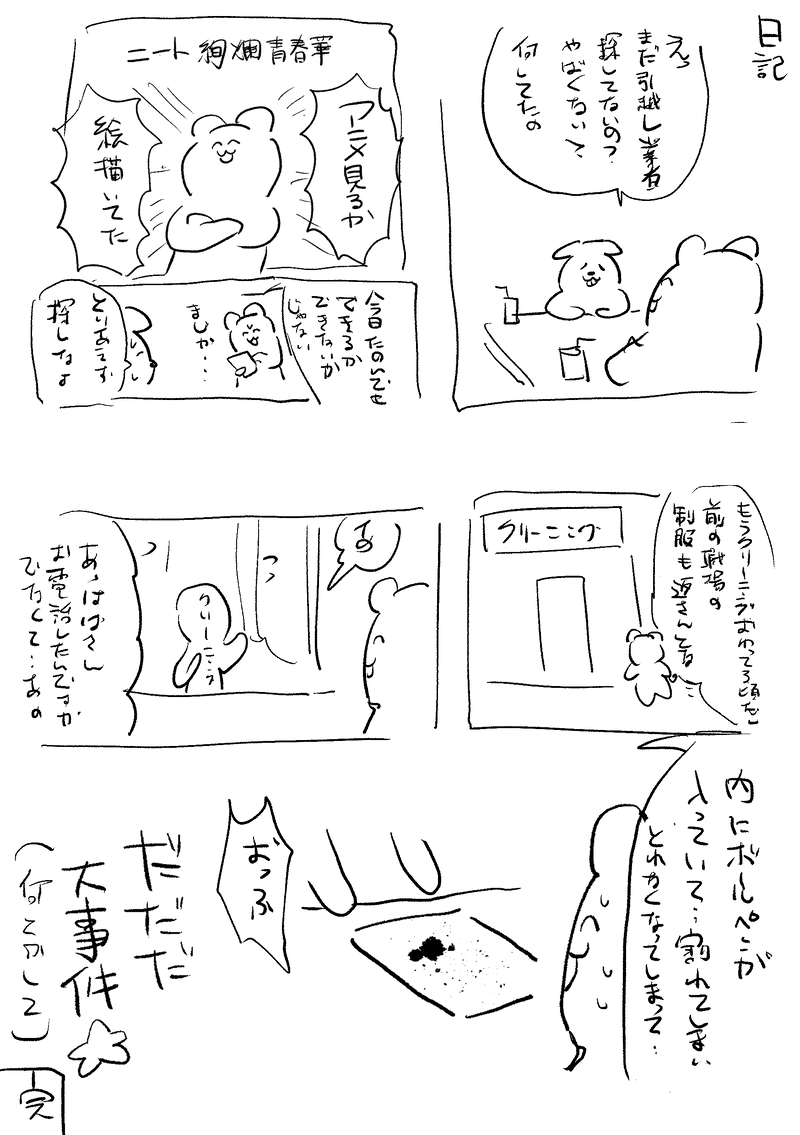 日記
えっ
まだ引越し業者
探してないの?
やばくない?
何してたの
ニート絢爛青春華
アニメ見るか
絵描いてた
今日たのんでも
できるか
できないか
じゃない
まじか・・・
とりあえず
探しなよ
もうクリーニングおわってる頃だし
前の職場の
制服も返さんとな
クリーニング
あの
クリーニング
あっはばさん
お電話したんですが
でなくて・・あの
内にボールペンが
入っていて・・割れてしまい
とれなくなってしまって・・
おっふ
だだだ
大事件
(何こかして)
完